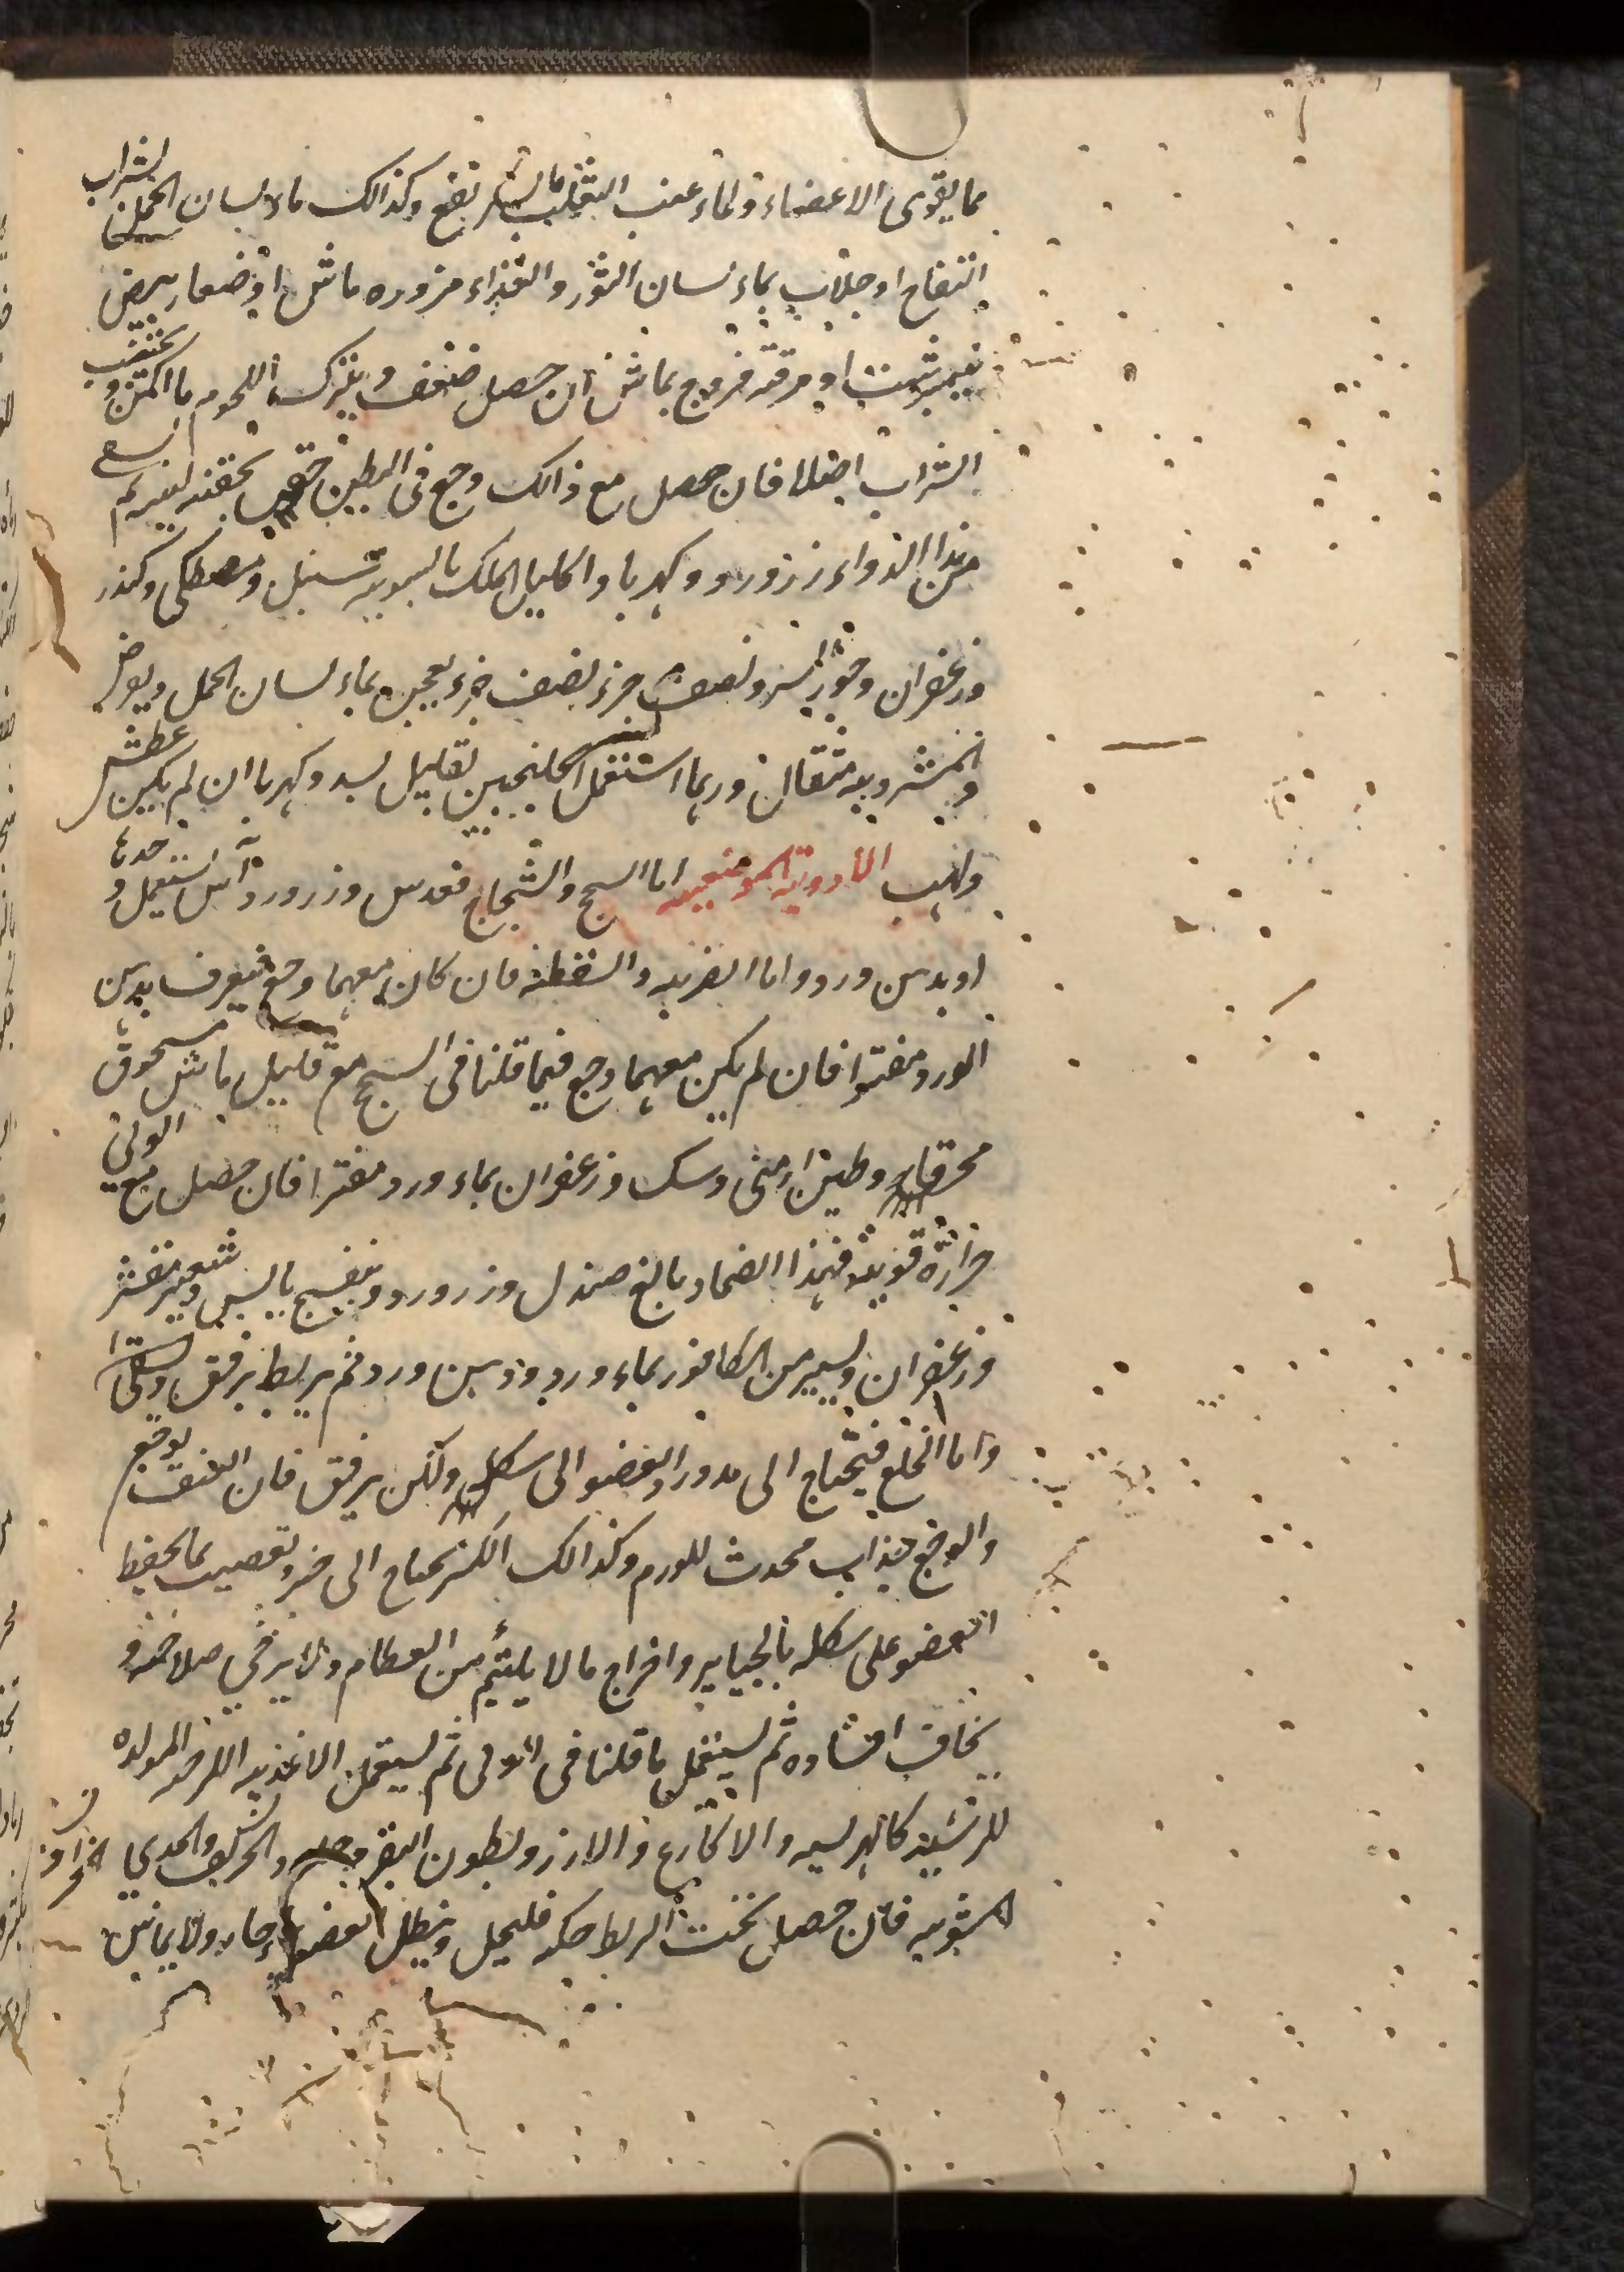 مما يقوى الاعضاء ولماء عنب الثعلب بالسكر نفع وكذالك ماء لسان الحمل بشراب
التفاح او جلاب بماء لسان الثور والغذاء مزوره ماش او خصار ببيض
نيمبرشت او مرقة فروج بماش ان حصل ضعف ويترك اللحوم ما امكن ويجتنب
الشراب اصلا فان حصل مع ذالك وجع فى البطن حقن بحقنة لينة ثم يسقى
من هذا الدواء زر ورد وكهربا واكليل الملك بالسويه سنبل ومصطكى وكندر
وزعفران وجوز السرو نصف جزء نصف جزء يعجن بماء لسان الحمل ويقرص
والشربه مثقال وربما استعمل الجلنجبين بقليل بسد وكهربا ان لم يكن عطش
ولهب الأدوية الموضعيه اما السحج والشجاج فعدس وزر ورد وآس يستعمل وحدها
او بدهن ورد واما الضربه والسقطه فان كان معهما وجع فيغرف بدهن
الورد مفترا فان لم يكن معهما وجع فما قلنا فى السحج مع قليل ماش مسحوق
محرقا وطين ارمنى وسك وزعفران بماء ورد مفترا فان حصل مع الوثى
حرارة قوية فهذا الضماد بالغ صندل وزر ورد وبنفسج يابس وشعير مقشر
وزعفران ويسير من الكافور بماء ورد ودهن ورد ثم يربط برفق
واما الخلع فيحتاج الى مد ورد العضو الى شكله ولكن برفق فان العنف يوجع
والوجع جذاب محدث للورم وكذالك الكسر يحتاج الى جبر وتعصيب بما يحفظ
العضو على شكله بالجباير واخراج ما لا يلتئم من العظام ولا يرجى صلاحه و
يخاف افساده ثم ليستعمل ما قلنا فى الوثى ثم ليستعمل الاغذيه اللزجه المولده
للدشبذ كالهريسه والاكارع والارز وبطون البقر وجلد الخروف والجدي
المشويه فان حصل تحت الربط حكه فليحل وينطل العضو بماء حار ولا يمانس